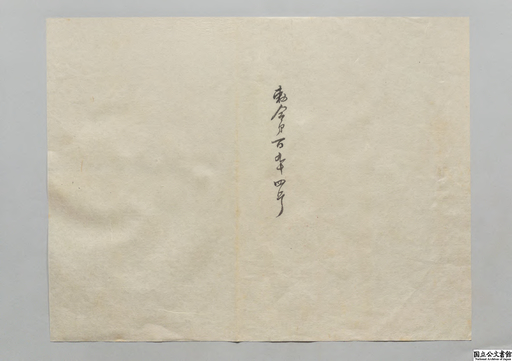 勅令第百九十四号
国立公文書館
National Archives of Japan